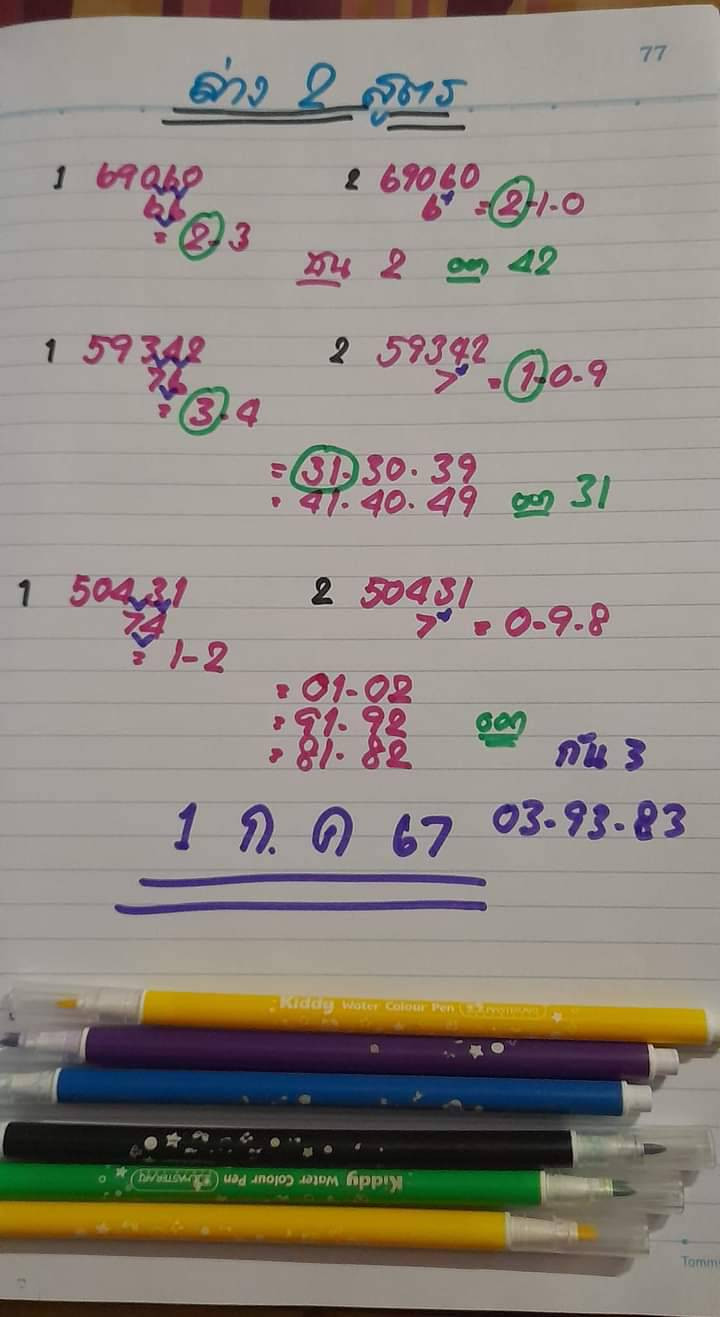 77
ล่าง 2 สูตร
1 69060 2 69060
66 6 = 2-1-0
= 2-3
ชน 2 ออก 42
1 59342 2 59342
76 7 = 1-0-9
= 3-4
= 31-30-39
= 41-40-49 ออก 31
1 50431 2 50431
74 7 = 0-9-8
= 1-2
= 01-02
= 91-92 ออก
= 81-82 กัน 3
1 ก. ค 67 03-93-83
Kiddy Water Colour Pen
Kiddy Water Colour Pen MASTERART